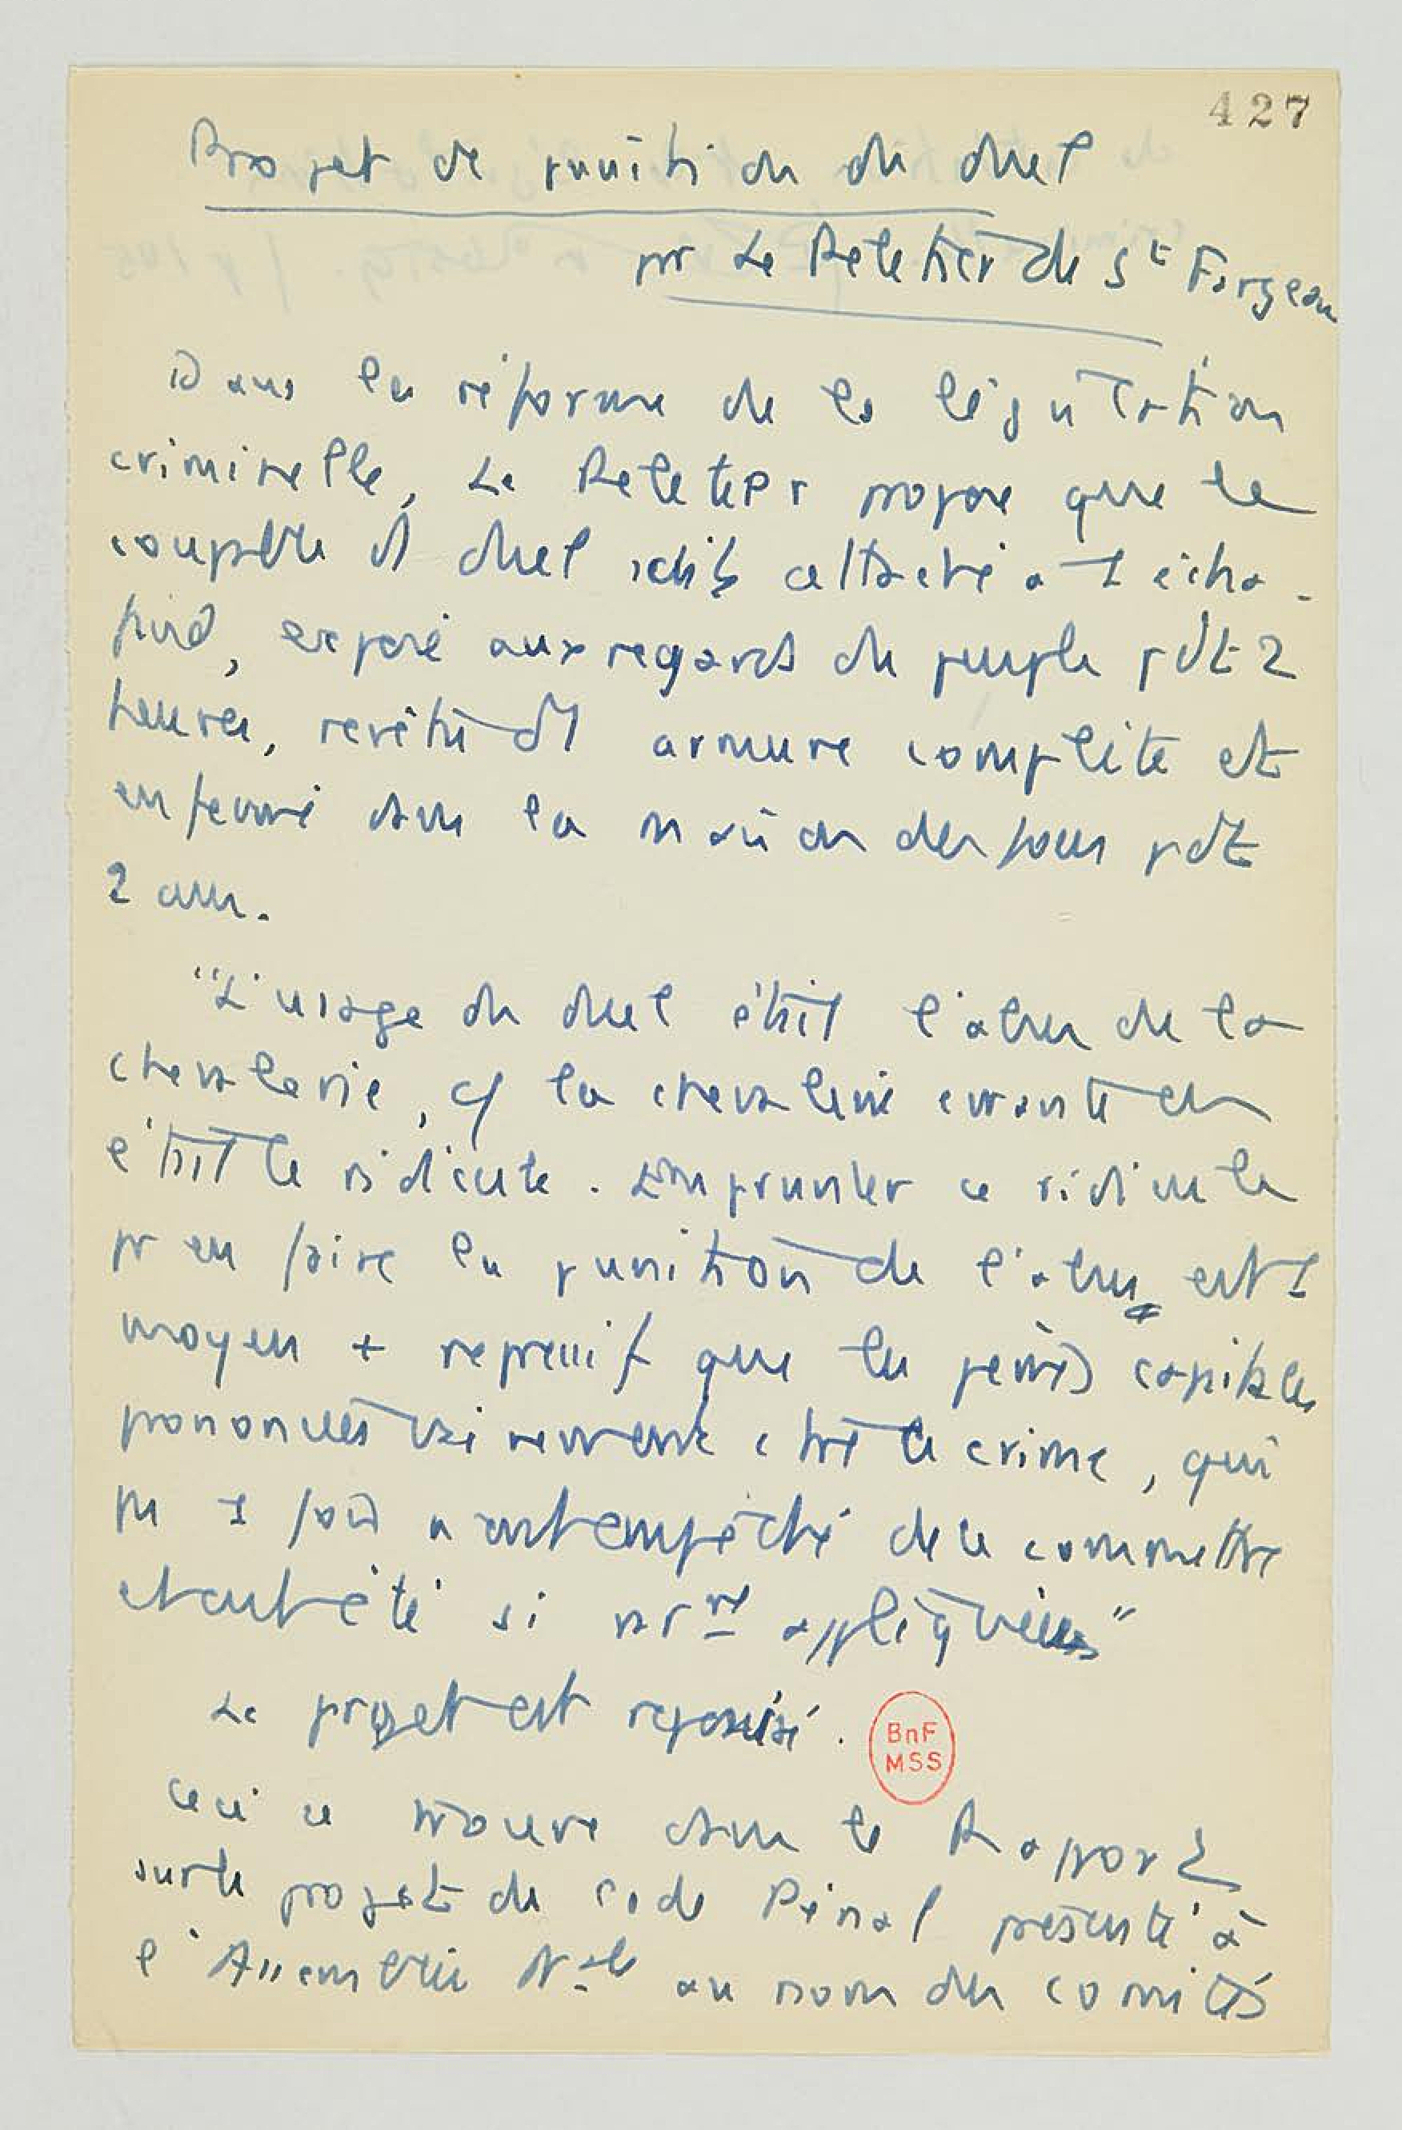 427
Projet de punition du duel
pr Le Peletier de St Fargeau
Dans la réforme de la législation
criminelle, Le Peletier propose que le
coupble d1 duel soit attaché à 1 écha-
faud, exposé aux regards du peuple pdt 2
heures, revêtu d1 armure complète et
enfermé dans la maison des fous pdt
2 ans.
"L'usage du duel était l'abus de la
chevalerie, cf la chevalerie errante en
était le ridicule. Emprunter ce ridicule
pr en faire la punition de l'abus est 1
moyen + repressif que les peines capitales
prononcées vainement ctre le crime, qui
pas 1 fois n'ont empêché de le commettre
et ont été si rarmt appliquées"
Le projet est repoussé.
BnF
MSS
Ceci se trouve dans le Rapport
sur le projet de Code Pénal présenté à
l'Assemblée Nale au nom des comités